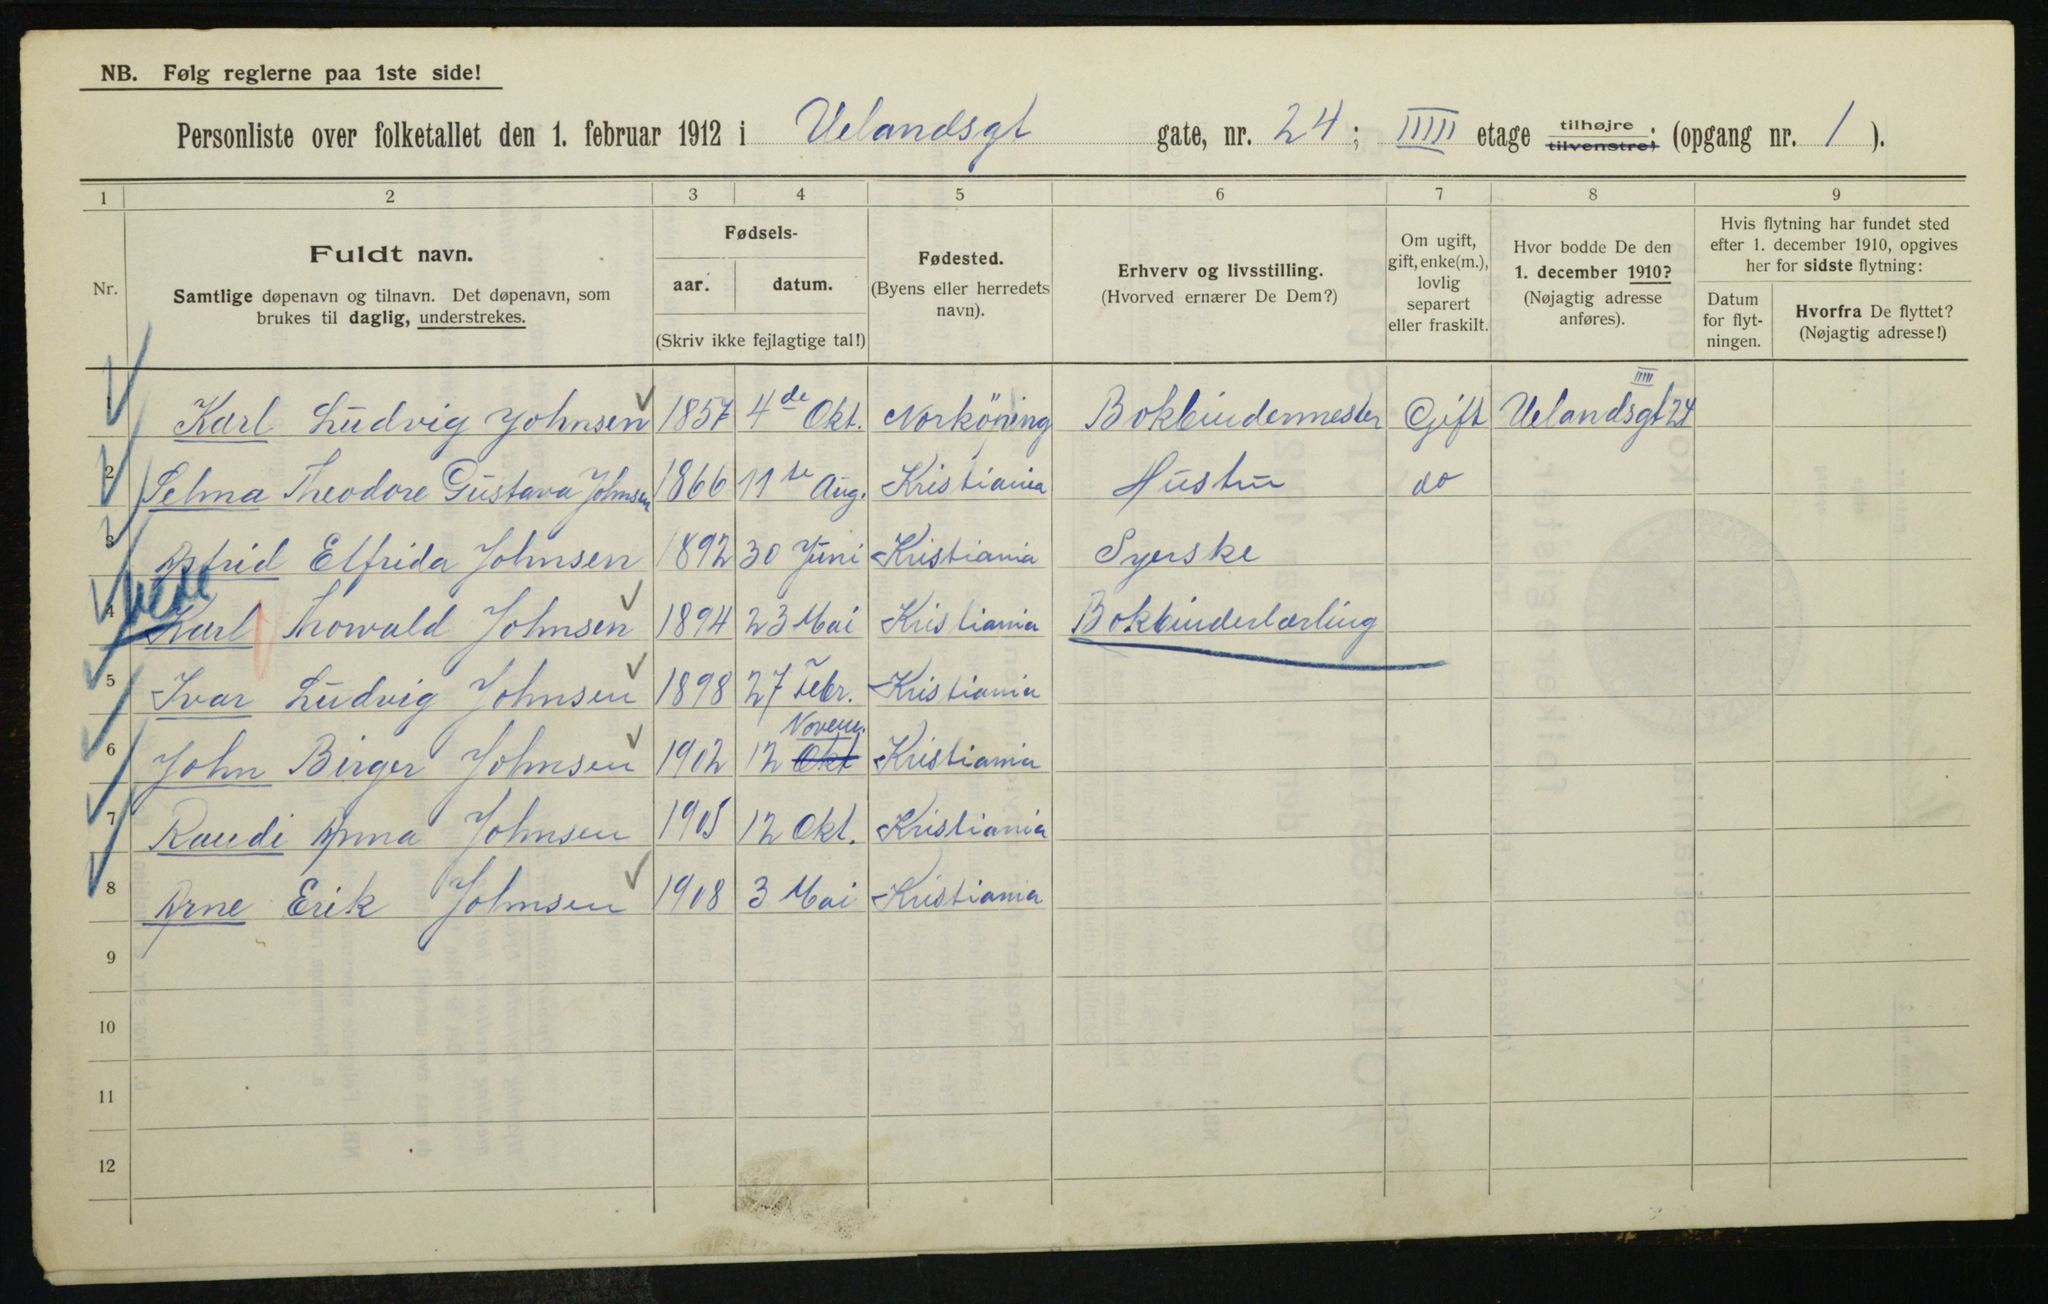 NB. Følg reglerne paa 1ste side!
Personliste over folketallet den 1. februar 1912 i Uelandsgt gate, nr. 24; IIIII etage tilhøjre tilvenstre: (opgang nr. 1).
1 2 3 4 5 6 7 8 9
Nr.
Fuldt navn.
Samtlige døpenavn og tilnavn. Det døpenavn, som
brukes til daglig, understrekes.
Fødsels-
aar. datum.
(Skriv ikke fejlagtige tal!)
Fødested.
(Byens eller herredets
navn).
Erhverv og livsstilling.
(Hvorved ernærer De Dem?)
Om ugift,
gift, enke(m.),
lovlig
separert
eller fraskilt.
Hvor bodde De den
1. december 1910?
(Nøjagtig adresse
anføres).
Hvis flytning har fundet sted
efter 1. december 1910, opgives
her for sidste flytning:
Datum
for flyt-
ningen.
Hvorfra De flyttet?
(Nøjagtig adresse!)
1 Karl Ludvig Johnsen 1857 4de Okt. Norköping Bokbindermester Gift Uelandsgt 24 IIIII
2 Selma Theodore Gustava Johnsen 1866 11te Aug. Kristiania Hustru do
3 Astrid Elfrida Johnsen 1892 30 Juni Kristiania Syerske
4 Karl Thorvald Johnsen 1894 23 Mai Kristiania Bokbinderlærling
5 Ivar Ludvig Johnsen 1898 27 Febr. Kristiania
6 John Birger Johnsen 1902 12 Okt Novem. Kristiania
7 Randi Anna Johnsen 1905 12 Okt. Kristiania
8 Arne Erik Johnsen 1908 3 Mai Kristiania
9
10
11
12